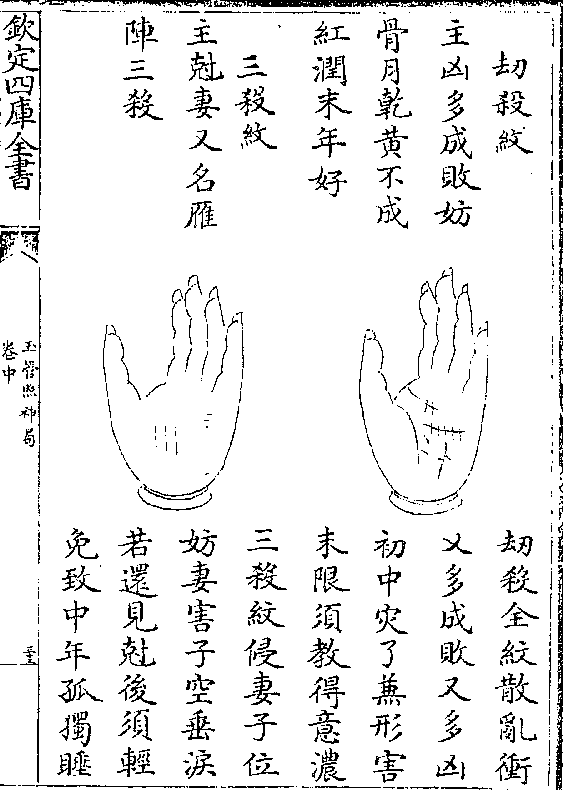 刼殺紋
主凶多成敗妨
骨月乾黄不成
紅潤末年好
三殺紋
主尅妻又名雁
陣三殺
刼殺全紋散亂衝
乂多成敗又多凶
初中灾了兼形害
末限須教得意濃
三殺紋侵妻子位
妨妻害子空垂淚
若還見尅後須輕
免致中年孤獨睡
欽定四庫全書
玉管照神局
卷中